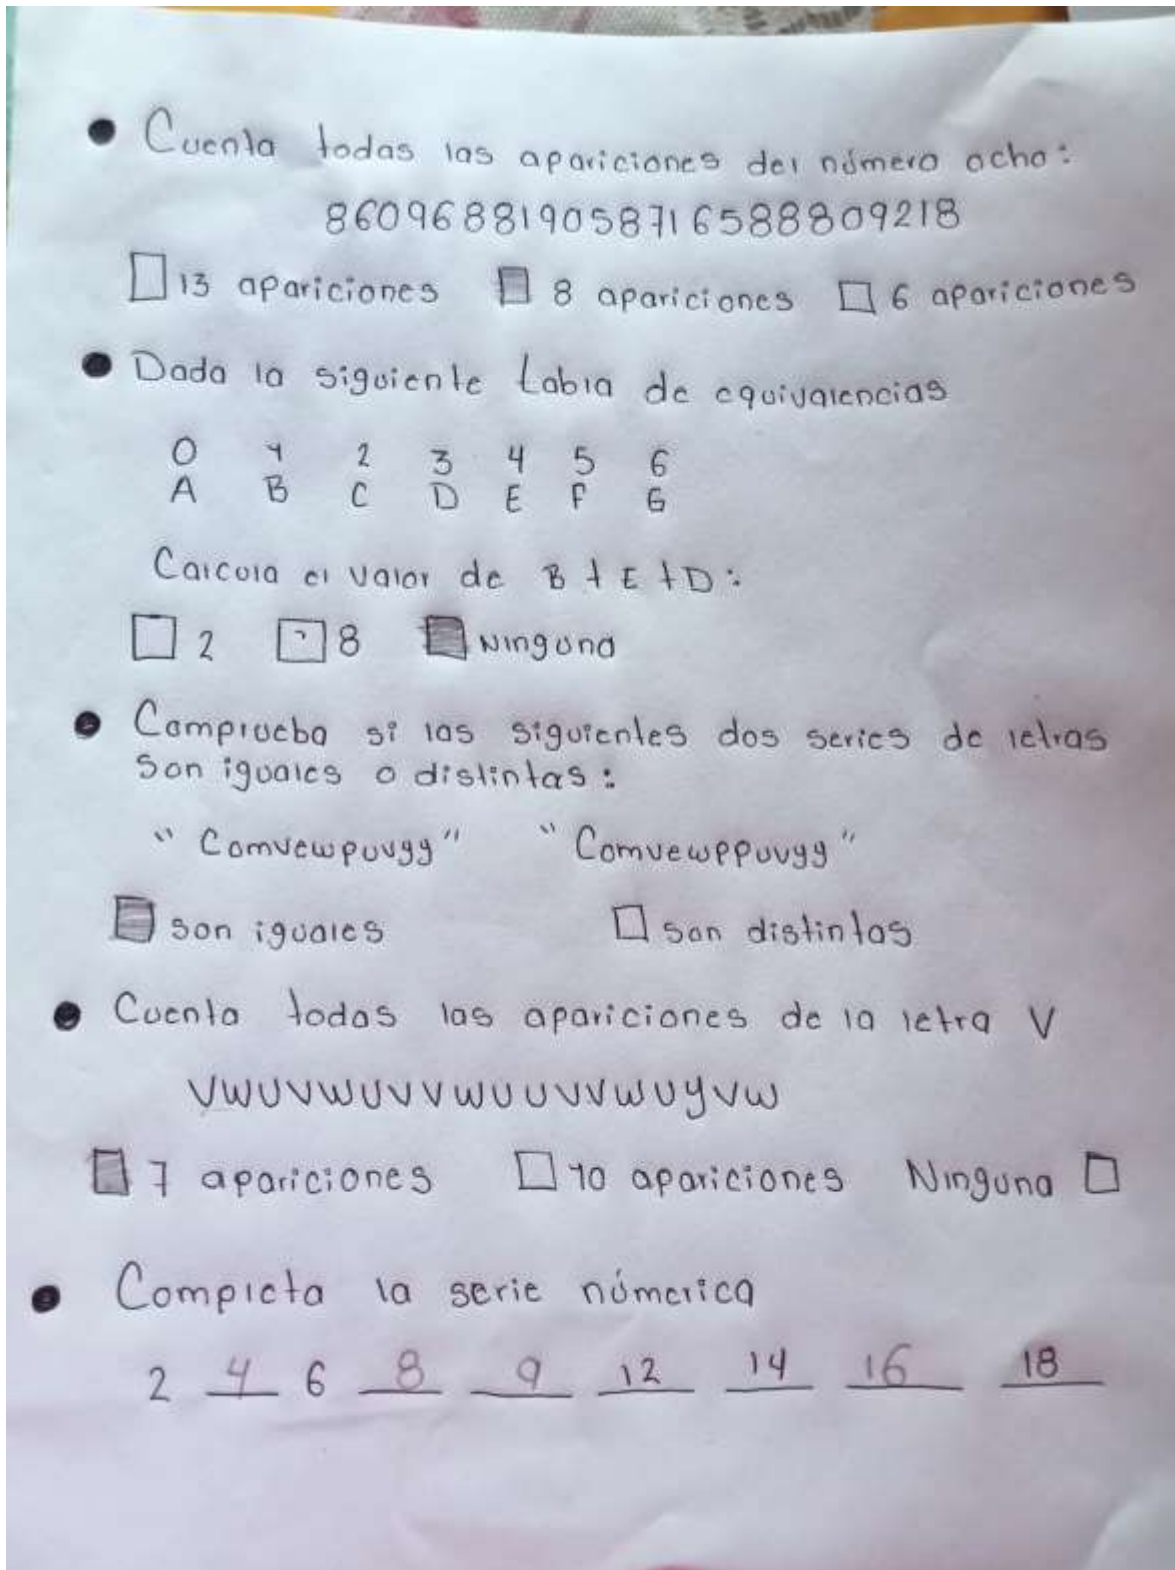 • Cuenta todas las apariciones del número ocho:
860968819058716588809218
☐ 13 apariciones ■ 8 apariciones ☐ 6 apariciones
• Dada la siguiente tabla de equivalencias
0 1 2 3 4 5 6
A B C D E F G
Calcula el valor de B + E + D:
☐ 2 ☐ 8 ■ Ninguna
• Comprueba si las siguientes dos series de letras
son iguales o distintas:
"Comvewpuvgg" "Comvewppuvgg"
■ son iguales ☐ son distintas
• Cuenta todas las apariciones de la letra V
VWUVWUVVWUUVVWUYVW
■ 7 apariciones ☐ 10 apariciones Ninguna ☐
• Completa la serie númerica
2 4 6 8 9 12 14 16 18